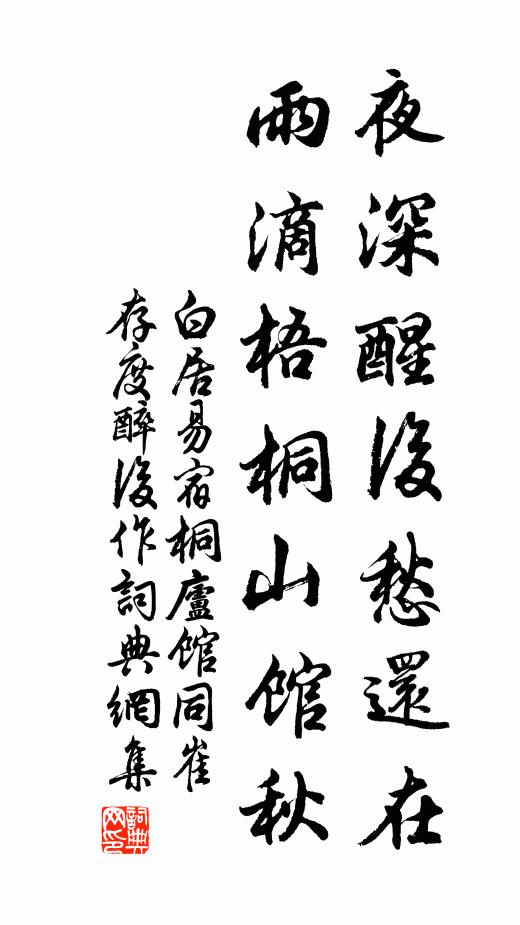 夜深醒後愁還在
雨滴梧桐山館秋
白居易宿桐廬館同崔
存度醉後作詞典網集
詞典
网印